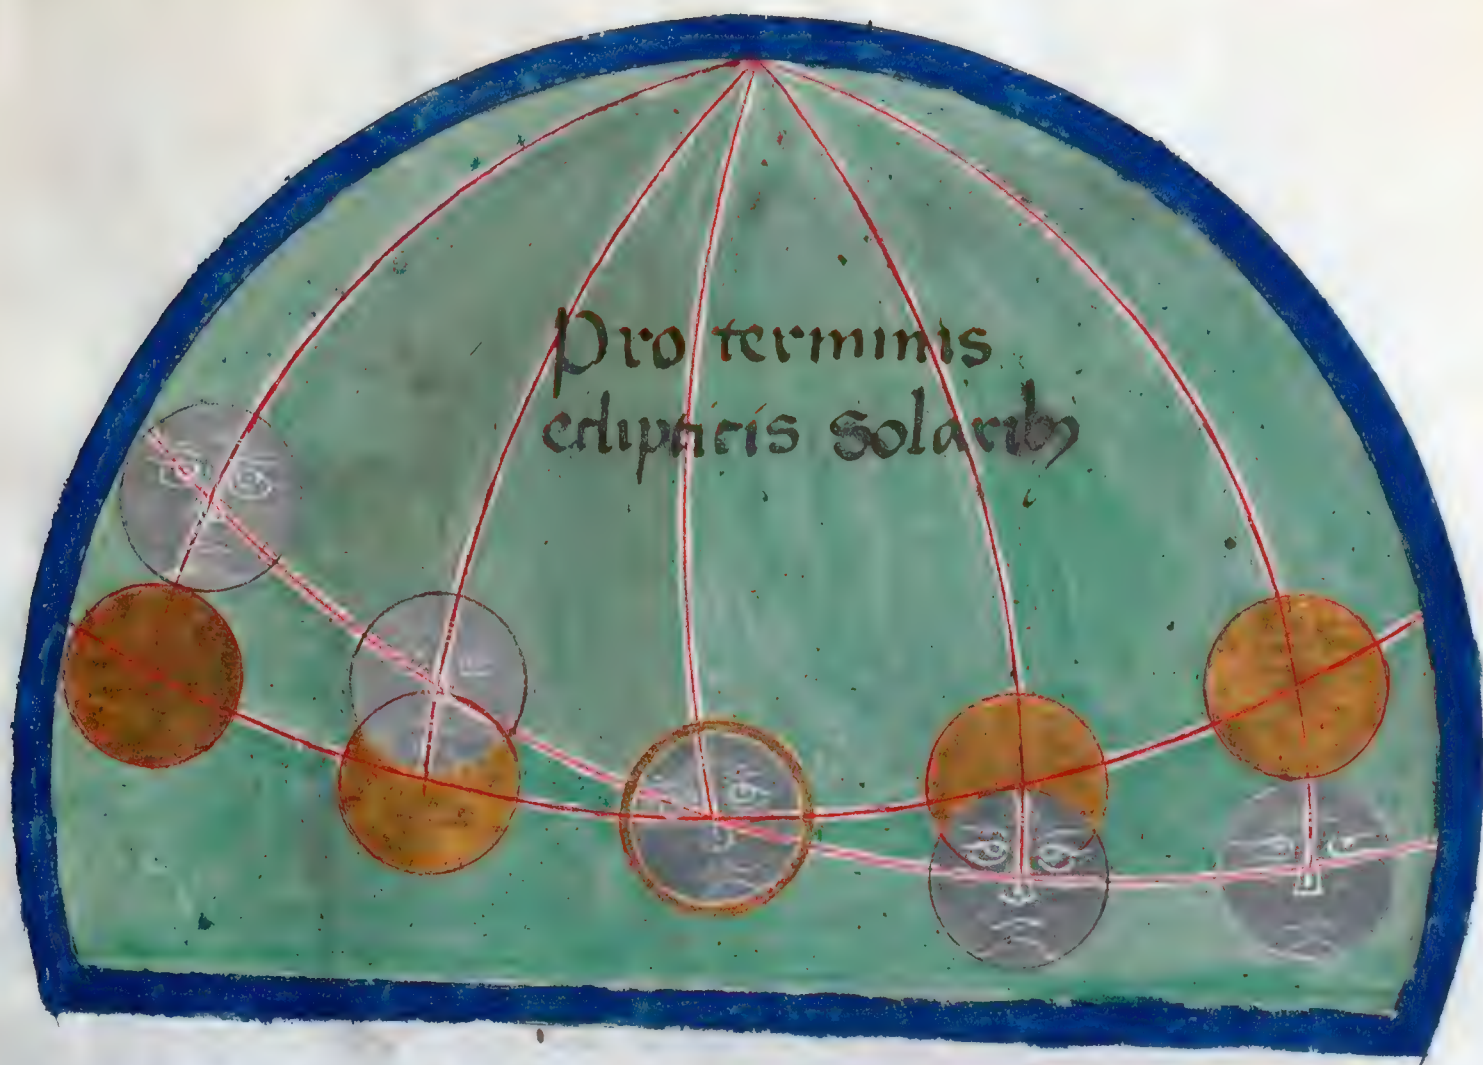 Pro terminis
eclipticis Solarib9